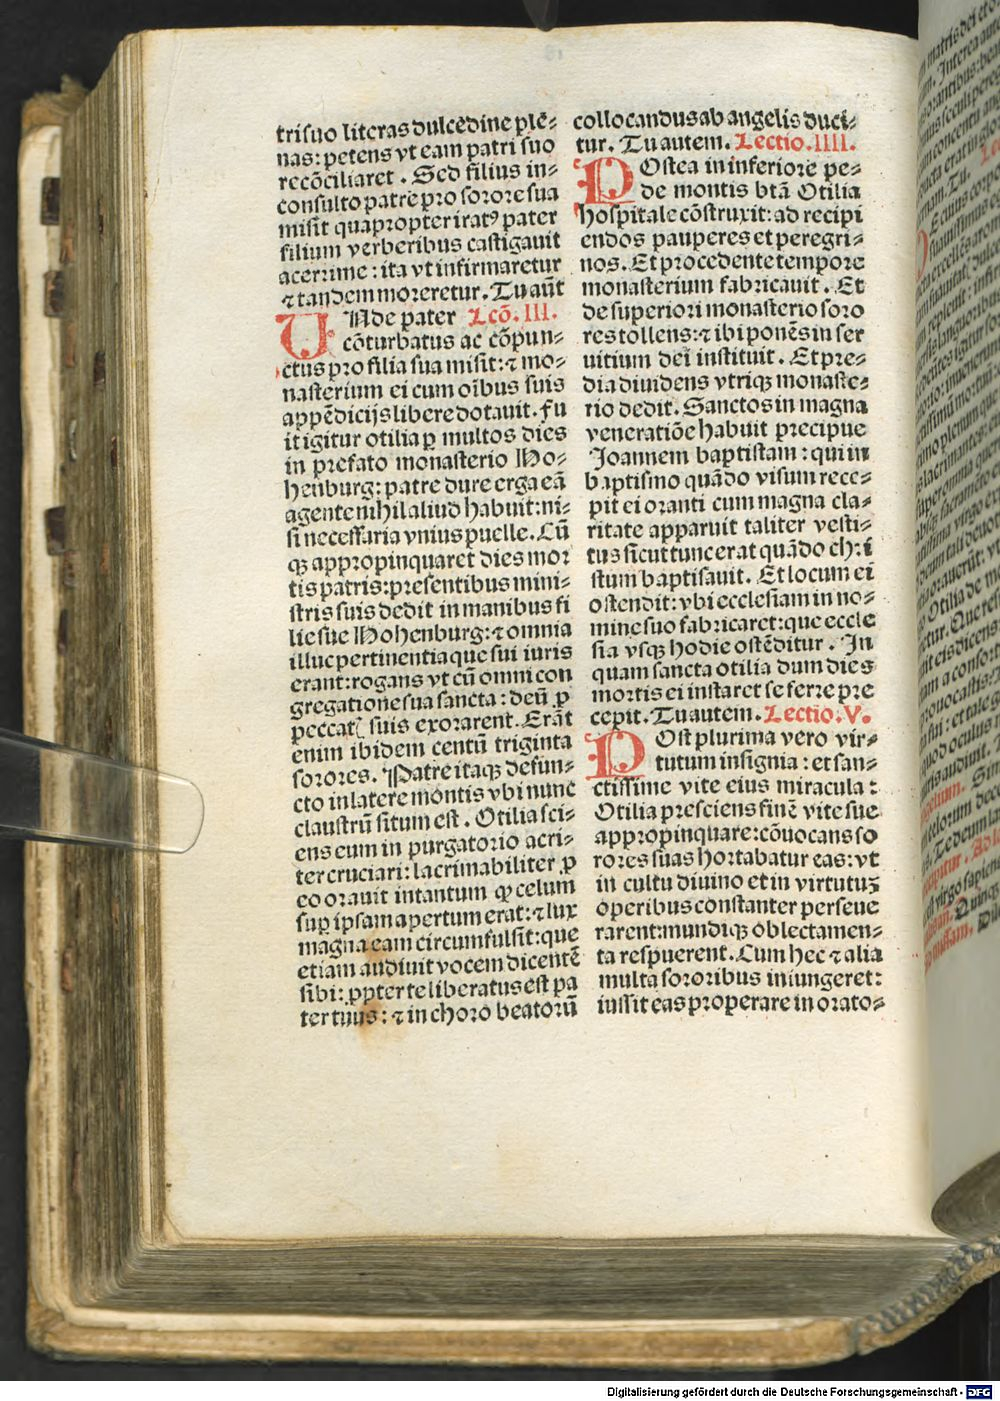 tri suo literas dulcedine plē⸗
nas: petens vt eam patri suo
recōciliaret. Sed filius in⸗
consulto patre pro sorore sua
misit quapropter iratꝰ pater
filium verberibus castigauit
acerrime: ita vt infirmaretur
⁊ tandem moreretur. Tu aūt
Vnde pater Lcō. III.
cōturbatus ac cōpun⸗
ctus pro filia sua misit: ⁊ mo⸗
nasterium ei cum oībus suis
appēdicijs libere dotauit. fu
it igitur otilia ꝑ multos dies
in prefato monasterio Ho⸗
henburg: patre dure erga eā
agente nihil aliud habuit: ni⸗
si necessaria vnius puelle. Cū
qꝫ appropinquaret dies mor
tis patris: presentibus mini⸗
stris suis dedit in manibus fi
lie sue Hohenburg: ⁊ omnia
illuc pertinentia que sui iuris
erant: rogans vt cū omni con
gregatione sua sancta: deū ꝓ
peccatꝭ suis exorarent. Erāt
enim ibidem centū triginta
sorores. Patre itaqꝫ defun⸗
cto in latere montis vbi nunc
claustrū situm est. Otilia sci⸗
ens eum in purgatorio acri⸗
ter cruciari: lacrimabiliter ꝓ
eo orauit intantum ꝙ celum
suꝑ ipsam apertum erat: ⁊ lux
magna eam circumfulsit: que
etiam audiuit vocem dicentē
sibi: ꝓpter te liberatus est pa
ter tuus: ⁊ in choro beatorū
collocandus ab angelis duci⸗
tur. Tu autem. Lectio. IIII.
POstea in inferiore pe⸗
de montis btā Otilia
hospitale cōstruxit: ad recipi
endos pauperes et peregri⸗
nos. Et procedente tempore
monasterium fabricauit. Et
de superiori monasterio soro
res tollens: ⁊ ibi ponēs in ser
uitium dei instituit. Et pre⸗
dia diuidens vtriqꝫ monaste⸗
rio dedit. Sanctos in magna
veneratiōe habuit precipue
Joannem baptistam: qui in
baptismo quādo visum rece⸗
pit ei oranti cum magna cla⸗
ritate apparuit taliter vesti⸗
tus sicut tunc erat quādo chri
stum baptisauit. Et locum ei
ostendit: vbi ecclesiam in no⸗
mine suo fabricaret: que eccle
sia vsqꝫ hodie ostēditur. In
quam sancta otilia dum dies
mortis ei instaret se ferre pre
cepit. Tu autem. Lectio. V.
POst plurima vero vir⸗
tutum insignia: et san⸗
ctissime vite eius miracula:
Otilia presciens finē vite sue
appropinquare: cōuocans so
rores suas hortabatur eas: vt
in cultu diuino et in virtutuꝫ
operibus constanter perseue
rarent: mundiqꝫ oblectamen⸗
ta respuerent. Cum hec ⁊ alia
multa sororibus iniungeret:
iussit eas properare in orato⸗
Digitalisierung gefördert durch die Deutsche Forschungsgemeinschaft - DFG